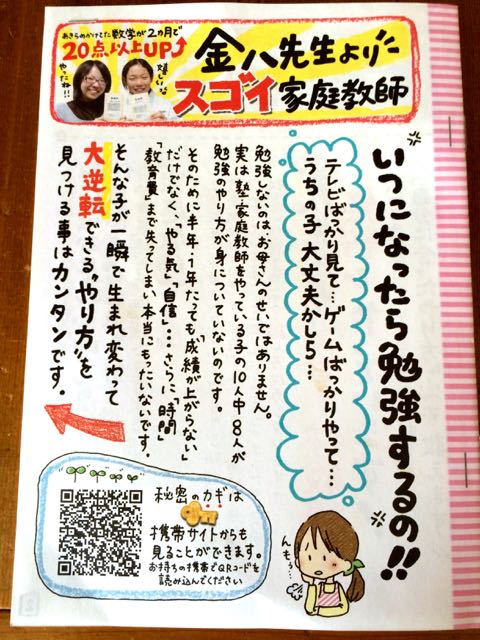 あきらめかけてた数学が2カ月で
20点以上UP↑
やったね!!
嬉しいな
金八先生より
スゴイ家庭教師
いつになったら勉強するの!!
テレビばっかり見て…ゲームばっかりやって…
うちの子 大丈夫かしら…
勉強しないのは、お母さんのせいではありません。
実は塾・家庭教師をやっている子の10人中8人が
勉強のやり方が身についていないのです。
そのために半年・1年たっても「成績が上がらない」
だけでなく、「やる気」「自信」…さらに「時間」
「教育費」まで失ってしまい本当にもったいないです。
そんな子が一瞬で生まれ変わって
大逆転できる"やり方"を
見つける事はカンタンです。
秘密のカギは
携帯サイトからも
見ることができます。
お持ちの携帯でQRコードを
読み込んでください
んもぅ…
2